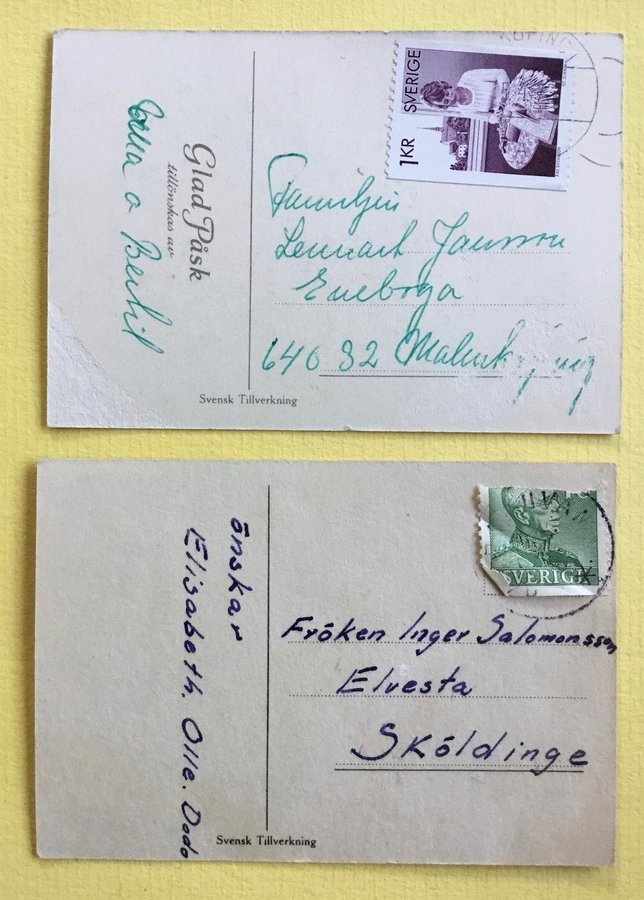 KÖPING
SVERIGE
1 KR
Glad Påsk
tillönskas av
a Berhil
Familjen
Lennart Jansson
Eneboga
640 32 Malmköping
Svensk Tillverkning
SVERIGE
önskar
Elisabeth. Olle. Dodo
Fröken Inger Salomonsson
Elvesta
Sköldinge
Svensk Tillverkning